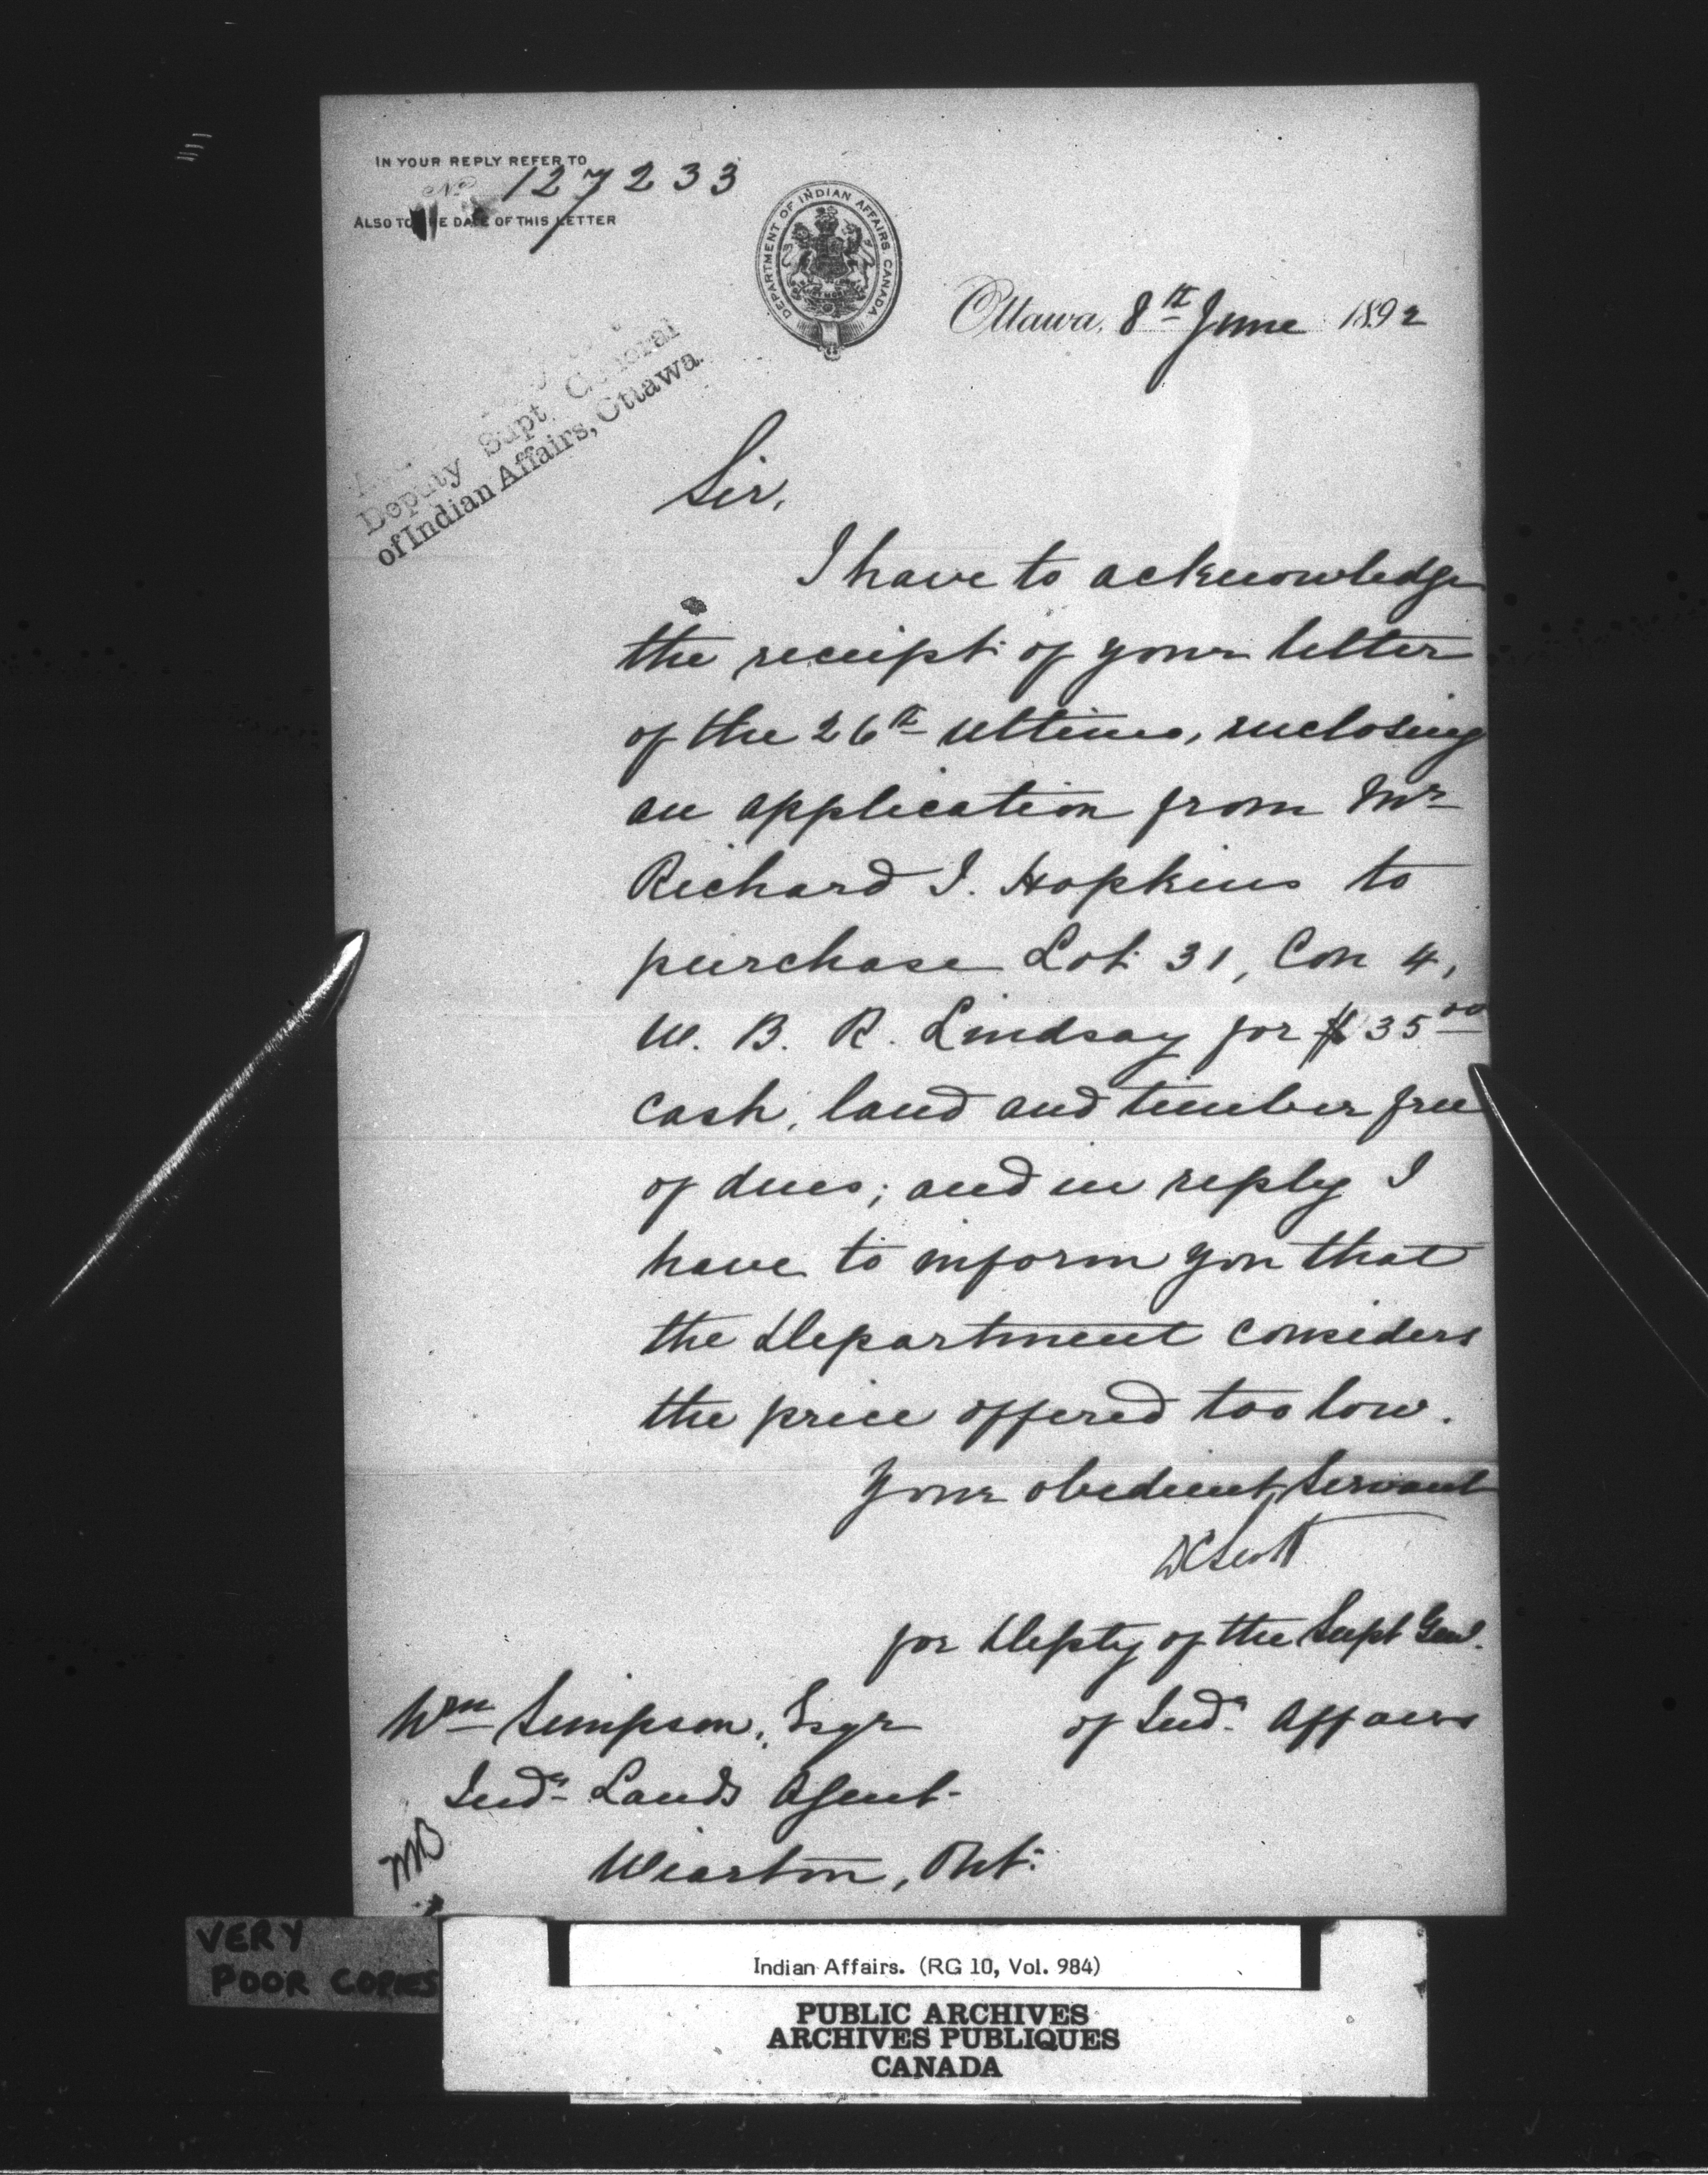 IN YOUR REPLY REFER TO
No 127233
ALSO TO THE DATE OF THIS LETTER
DEPARTMENT OF INDIAN AFFAIRS. CANADA
Ottawa, 8th June 1892
Deputy Supt. General
of Indian Affairs, Ottawa.
Sir,
I have to acknowledge
the receipt of your letter
of the 26th ultimo, enclosing
an application from Mr
Richard I. Hopkins to
purchase Lot 31, Con 4,
W. B. R. Lindsay for $35.00
cash, land and timber free
of dues; and in reply I
have to inform you that
the Department considers
the price offered too low.
Your obedient Servant
DCScott
for Depty of the Supt Genl.
Wm Simpson, Esqr
of Indn Affairs
Indn Lands Agent
Wiarton, Ont.
MB
VERY
POOR COPIES
Indian Affairs. (RG 10, Vol. 984)
PUBLIC ARCHIVES
ARCHIVES PUBLIQUES
CANADA